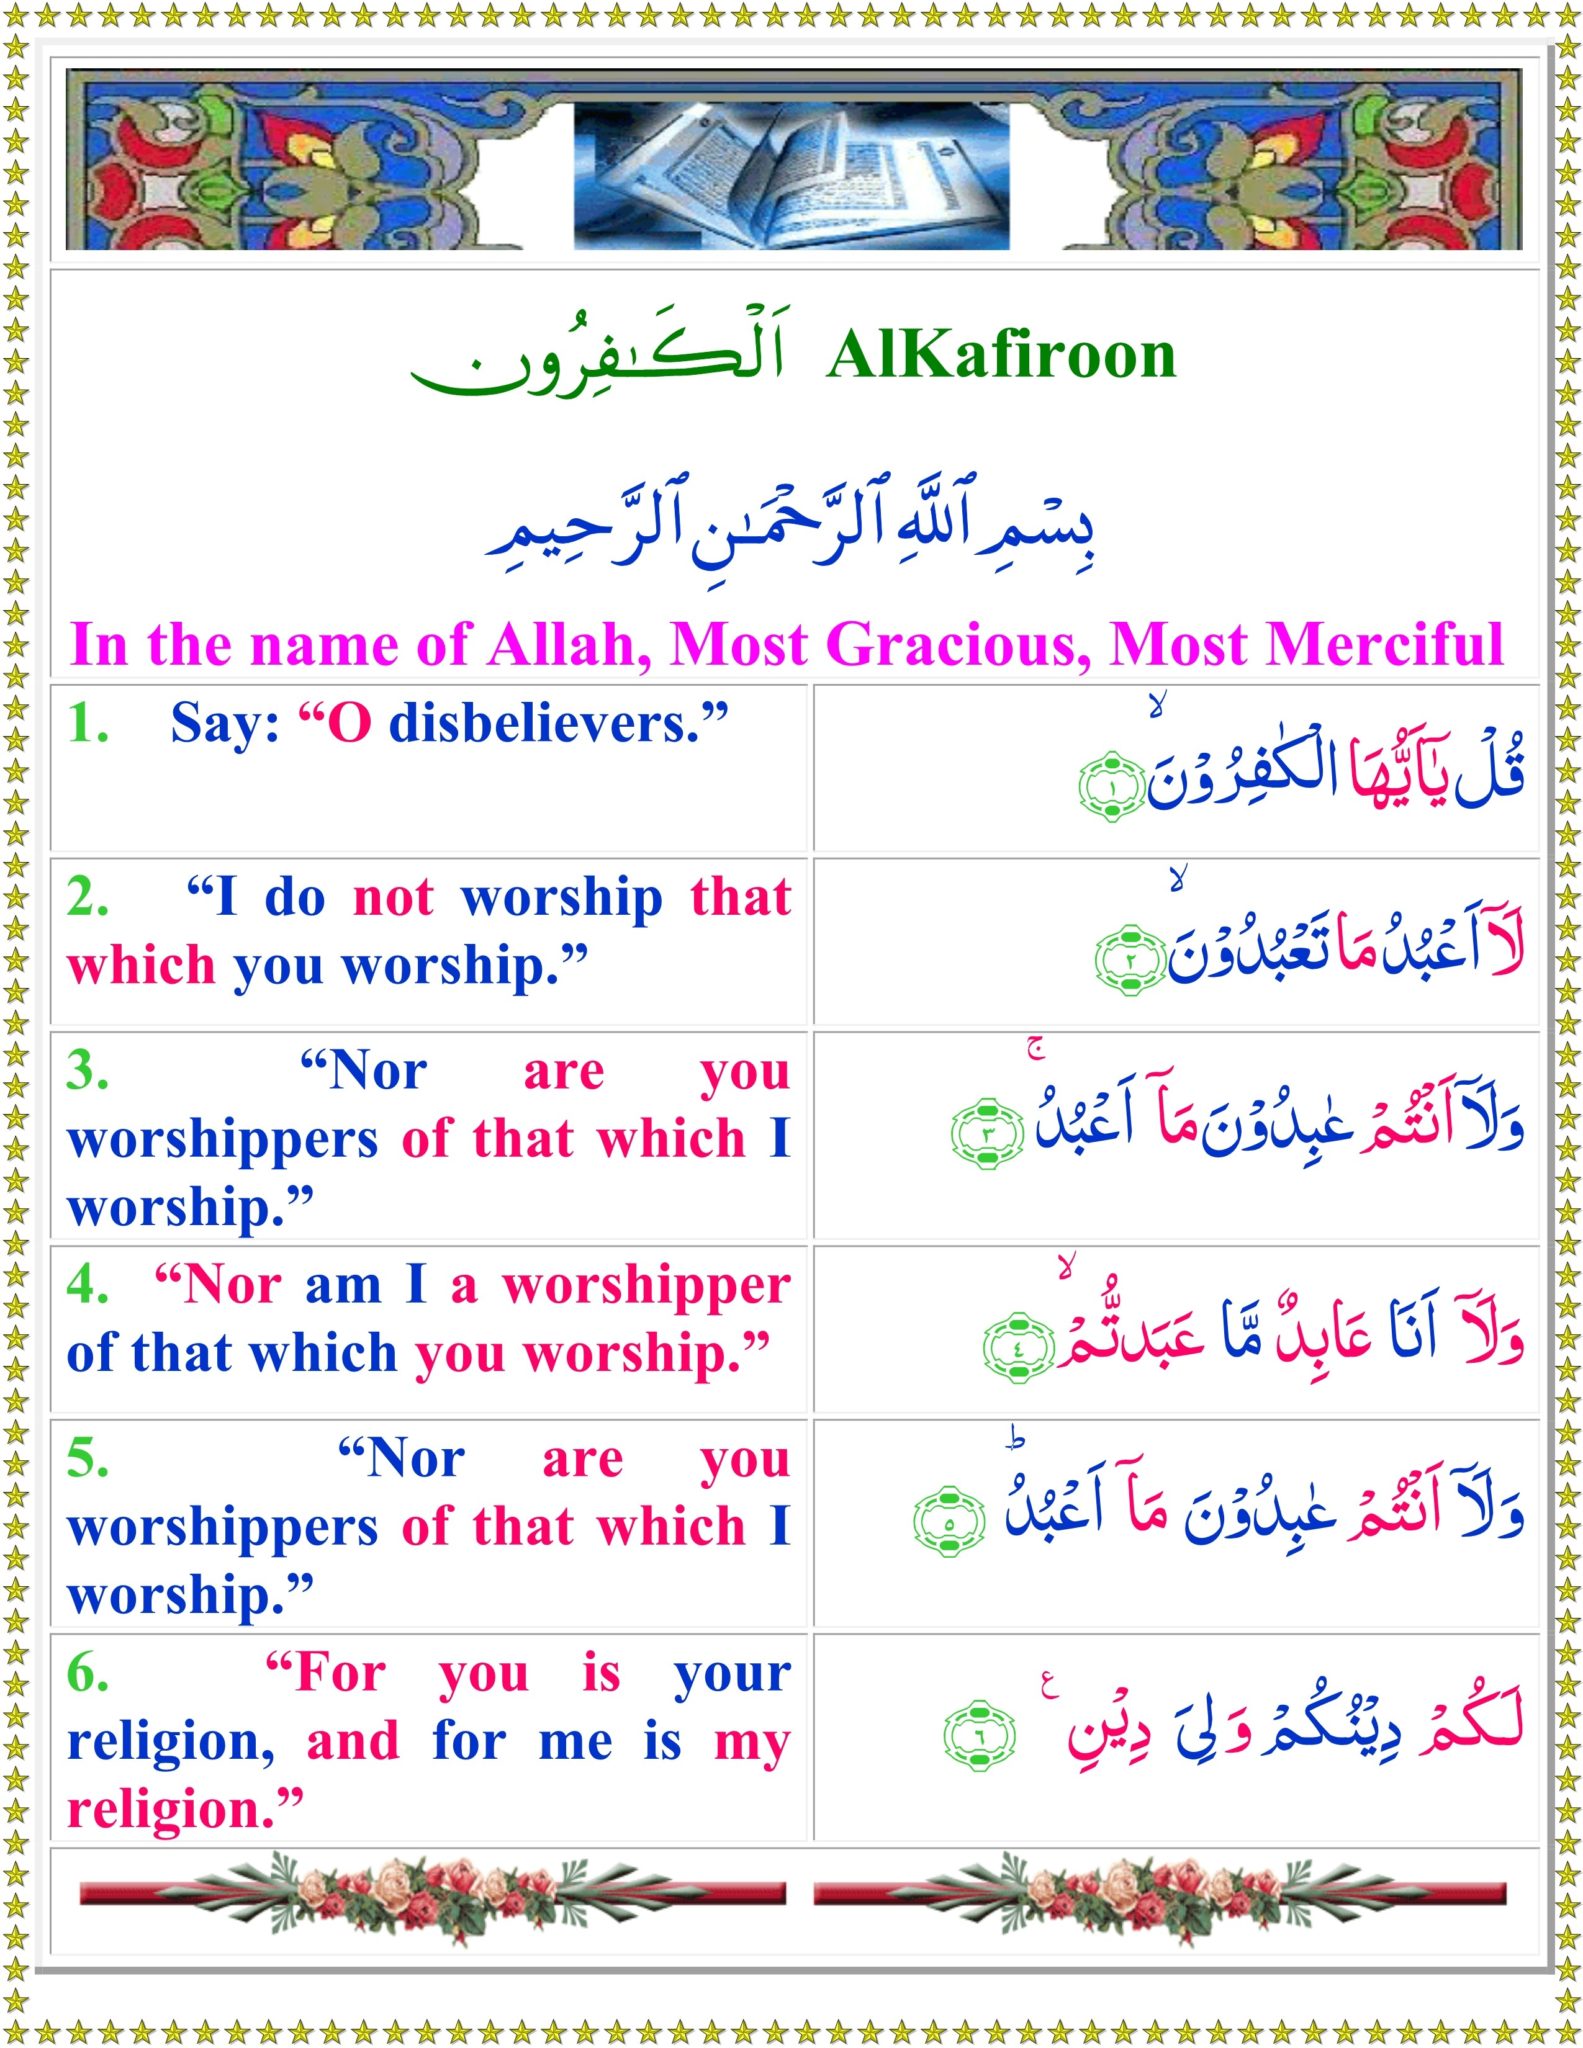 اَلْكَـٰفِرُون AlKafiroon
بِسْمِ ٱللَّهِ ٱلرَّحْمَـٰنِ ٱلرَّحِيمِ
In the name of Allah, Most Gracious, Most Merciful
1. Say: “O disbelievers.”
قُلْ يٰۤاَيُّهَا الْكٰفِرُوْنَۙ ﴿١﴾
2. “I do not worship that
which you worship.”
لَاۤ اَعْبُدُ مَا تَعْبُدُوْنَۙ ﴿٢﴾
3. “Nor are you
worshippers of that which I
worship.”
وَلَاۤ اَنْتُمْ عٰبِدُوْنَ مَاۤ اَعْبُدُۚ ﴿٣﴾
4. “Nor am I a worshipper
of that which you worship.”
وَلَاۤ اَنَا عَابِدٌ مَّا عَبَدتُّمْۙ ﴿٤﴾
5. “Nor are you
worshippers of that which I
worship.”
وَلَاۤ اَنْتُمْ عٰبِدُوْنَ مَاۤ اَعْبُدُؕ ﴿٥﴾
6. “For you is your
religion, and for me is my
religion.”
لَـكُمْ دِيْنُكُمْ وَلِىَ دِيْنِ ع ﴿٦﴾